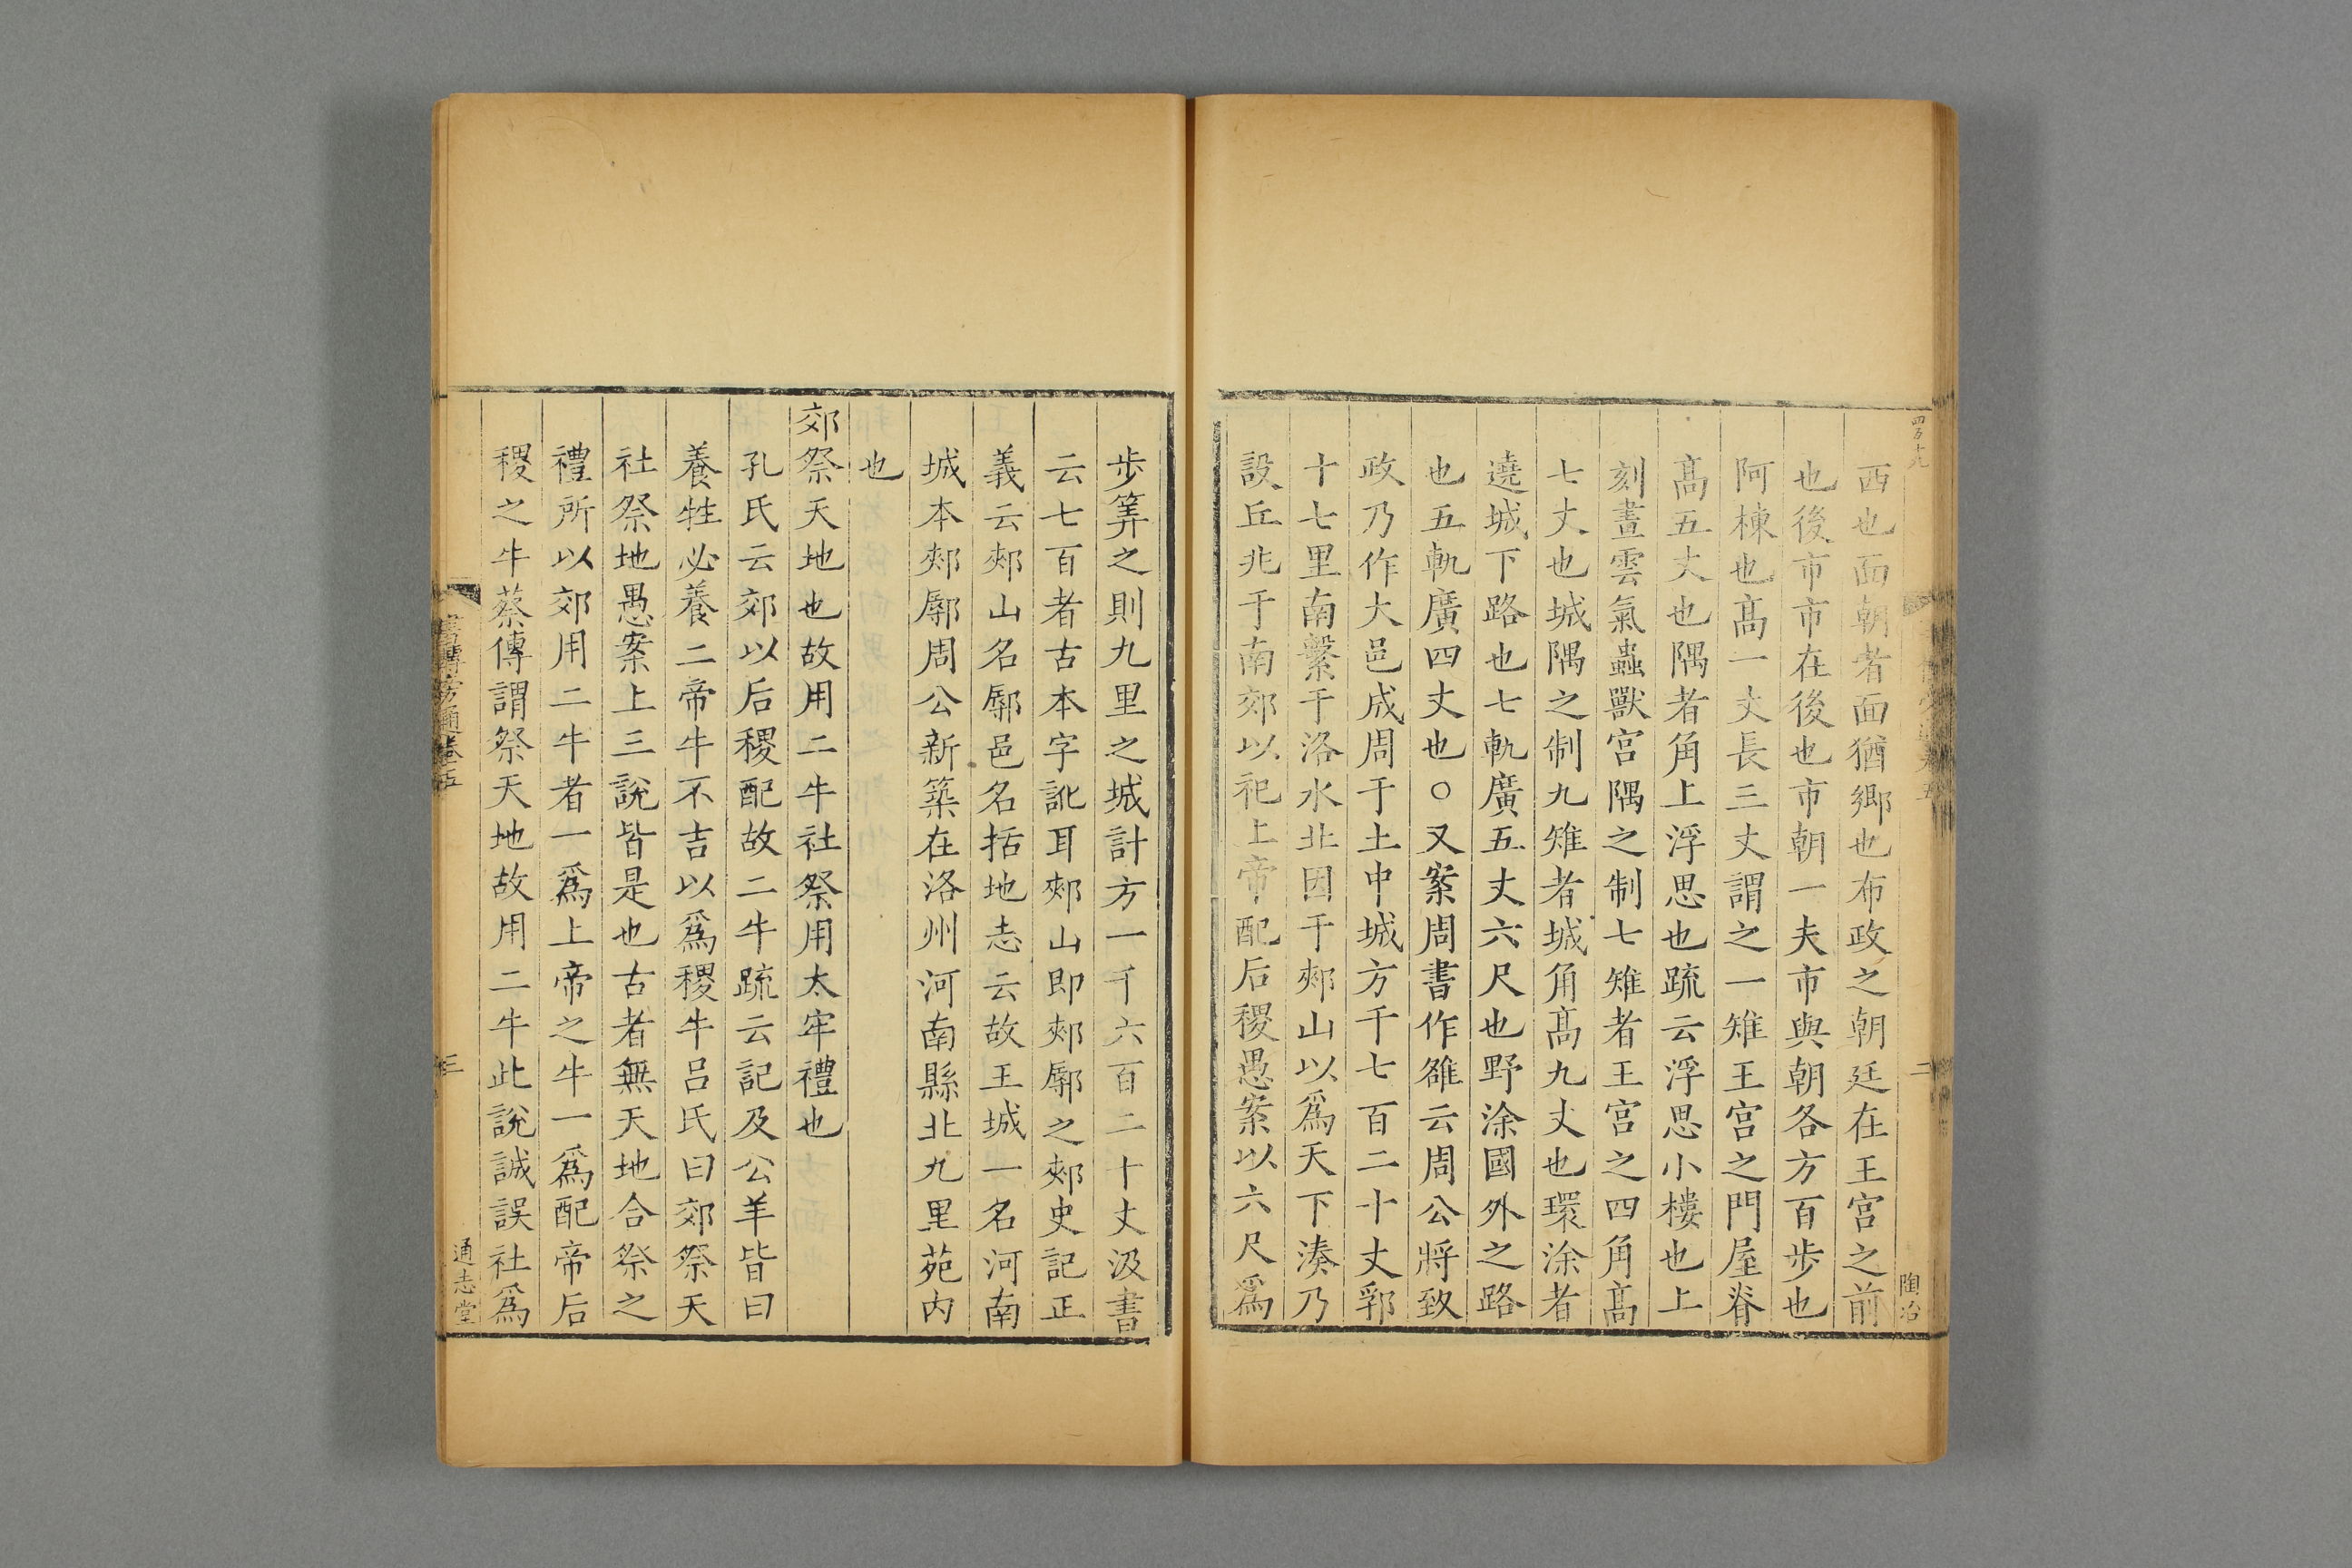 四百十九
西也面朝者面猶鄉也布政之朝廷在王宮之前
也後市市在後也市朝一夫市與朝各方百步也
阿棟也高一丈長三丈謂之一雉王宮之門屋脊
高五丈也隅者角上浮思也疏云浮思小樓也上
刻畫雲氣蟲獸宮隅之制七雉者王宮之四角高
七丈也城隅之制九雉者城角高九丈也環涂者
遶城下路也七軌廣五丈六尺也野涂國外之路
也五軌廣四丈也○又案周書作雒云周公將致
政乃作大邑成周于土中城方千七百二十丈郛
十七里南繫于洛水北因于郟山以爲天下湊乃
設丘兆于南郊以祀上帝配后稷愚案以六尺爲
二
陶冶
步筭之則九里之城計方一千六百二十丈汲書
云七百者古本字訛耳郟山即郟鄏之郟史記正
義云郟山名鄏邑名括地志云故王城一名河南
城本郟鄏周公新築在洛州河南縣北九里苑内
也
郊祭天地也故用二牛社祭用太牢禮也
孔氏云郊以后稷配故二牛疏云記及公羊皆曰
養牲必養二帝牛不吉以爲稷牛吕氏曰郊祭天
社祭地愚案上三說皆是也古者無天地合祭之
禮所以郊用二牛者一爲上帝之牛一爲配帝后
稷之牛蔡傳謂祭天地故用二牛此說誠誤社爲
書傳旁通卷五
三
通志堂